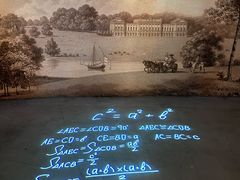 c² = a² + b²
△AEC = △CDB = 90° △AEC ≅ △CDB
AE = CD = b CE = BD = a AC = BC = c
S△AEC = S△CDB = ab/2
S△ACB = c²/2
(a+b)×(a+b)/2